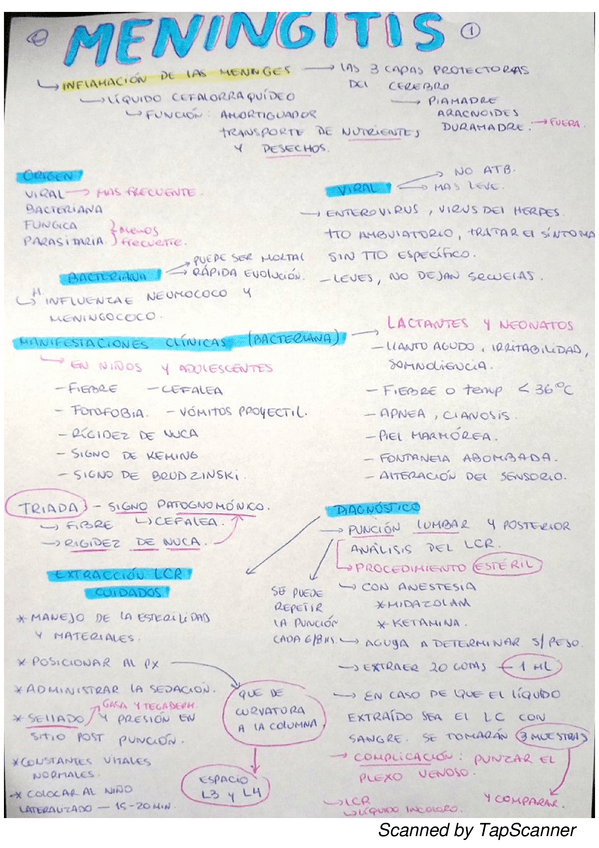 MENINGITIS ①
↳ INFlAMACIÓN DE LAS MENINGES → LAS 3 CAPAS PROTECTORAS
DEl CEREBRO
↳ LÍQUIDO CEFALORRAQUÍDEO
→ PIAMADRE
ARACNOIDES
DURAMADRE. → FUERA.
↳ FUNCIÓN: AMORTIGUADOR
TRANSPORTE DE NUTRIENTES
Y DESECHOS.
ORIGEN
VIRAL → MAS FRECUENTE.
BACTERIANA
FUNGICA
PARASITARIA. } MENOS frecuente.
VIRAL → NO ATB.
→ MAS LEVE.
→ ENTEROVIRUS, VIRUS DEl HERPES.
TTO AMBULATORIO, TRATAR El SÍNTOMA
SIN TTO ESPECÍFICO.
- LEVES, NO DEJAN SECUElAS.
BACTERIANA → PUEDE SER MORTAL
→ RÁPIDA EVOLUCIÓN.
↳ H. INFLUENZAE NEUMOCOCO Y
MENINGOCOCO.
MANIFESTACIONES CLÍNICAS (BACTERIANA)
→ EN NIÑOS Y ADOLESCENTES
- FIEBRE - CEFALEA
- FOTOFOBIA. - VÓMITOS PROYECTIL.
- RIGIDEZ DE NUCA
- SIGNO DE KERNING
- SIGNO DE BRUDZINSKI.
→ LACTANTES Y NEONATOS
- LLANTO AGUDO, IRRITABILIDAD,
SOMNOLIENCIA.
- FIEBRE O TEMP < 36°C
- APNEA, CIANOSIS.
- PIEl MARMÓREA.
- FONTANElA ABOMBADA.
- AlTERACIÓN DEl SENSORIO.
TRIADA - SIGNO PATOGNOMÓNICO.
↳ FIBRE ↳ CEFALEA.
→ RIGIDEZ DE NUCA.
DIAGNÓSTICO
→ PUNCIÓN LUMBAR Y POSTERIOR
ANÁLISIS DEL LCR.
↳ PROCEDIMIENTO ESTÉRIL
↳ CON ANESTESIA
* MIDAZOLAM
* KETAMINA.
SE PUEDE
REPETIR
LA PUNCIÓN
CADA 6/8 Hs
↳ AGUJA A DETERMINAR S/PESO.
→ EXTRAER 20 GOTAS - 1 Ml
→ EN CASO DE QUE El LÍQUIDO
EXTRAÍDO SEA El LC CON
SANGRE. SE TOMARÁN 3 MUESTRAS
Y COMPARAR.
→ COMPLICACIÓN: PUNZAR El
PLEXO VENOSO.
→ LCR
↳ LÍQUIDO INCOLORO.
EXTRACCIÓN LCR
CUIDADOS
* MANEJO DE LA ESTERILIDAD
Y MATERIALES.
* POSICIONAR AL PX
QUE DE
CURVATURA
A LA COLUMNA
ESPACIO
L3 Y L4
* ADMINISTRAR LA SEDACIÓN.
GASA Y TEGADERM.
* SELLADO Y PRESIÓN EN
SITIO POST PUNCIÓN.
* CONSTANTES VITALES
NORMALES.
* COLOCAR AL NIÑO
LATERALIZADO - 15-20 MIN.
Scanned by TapScanner